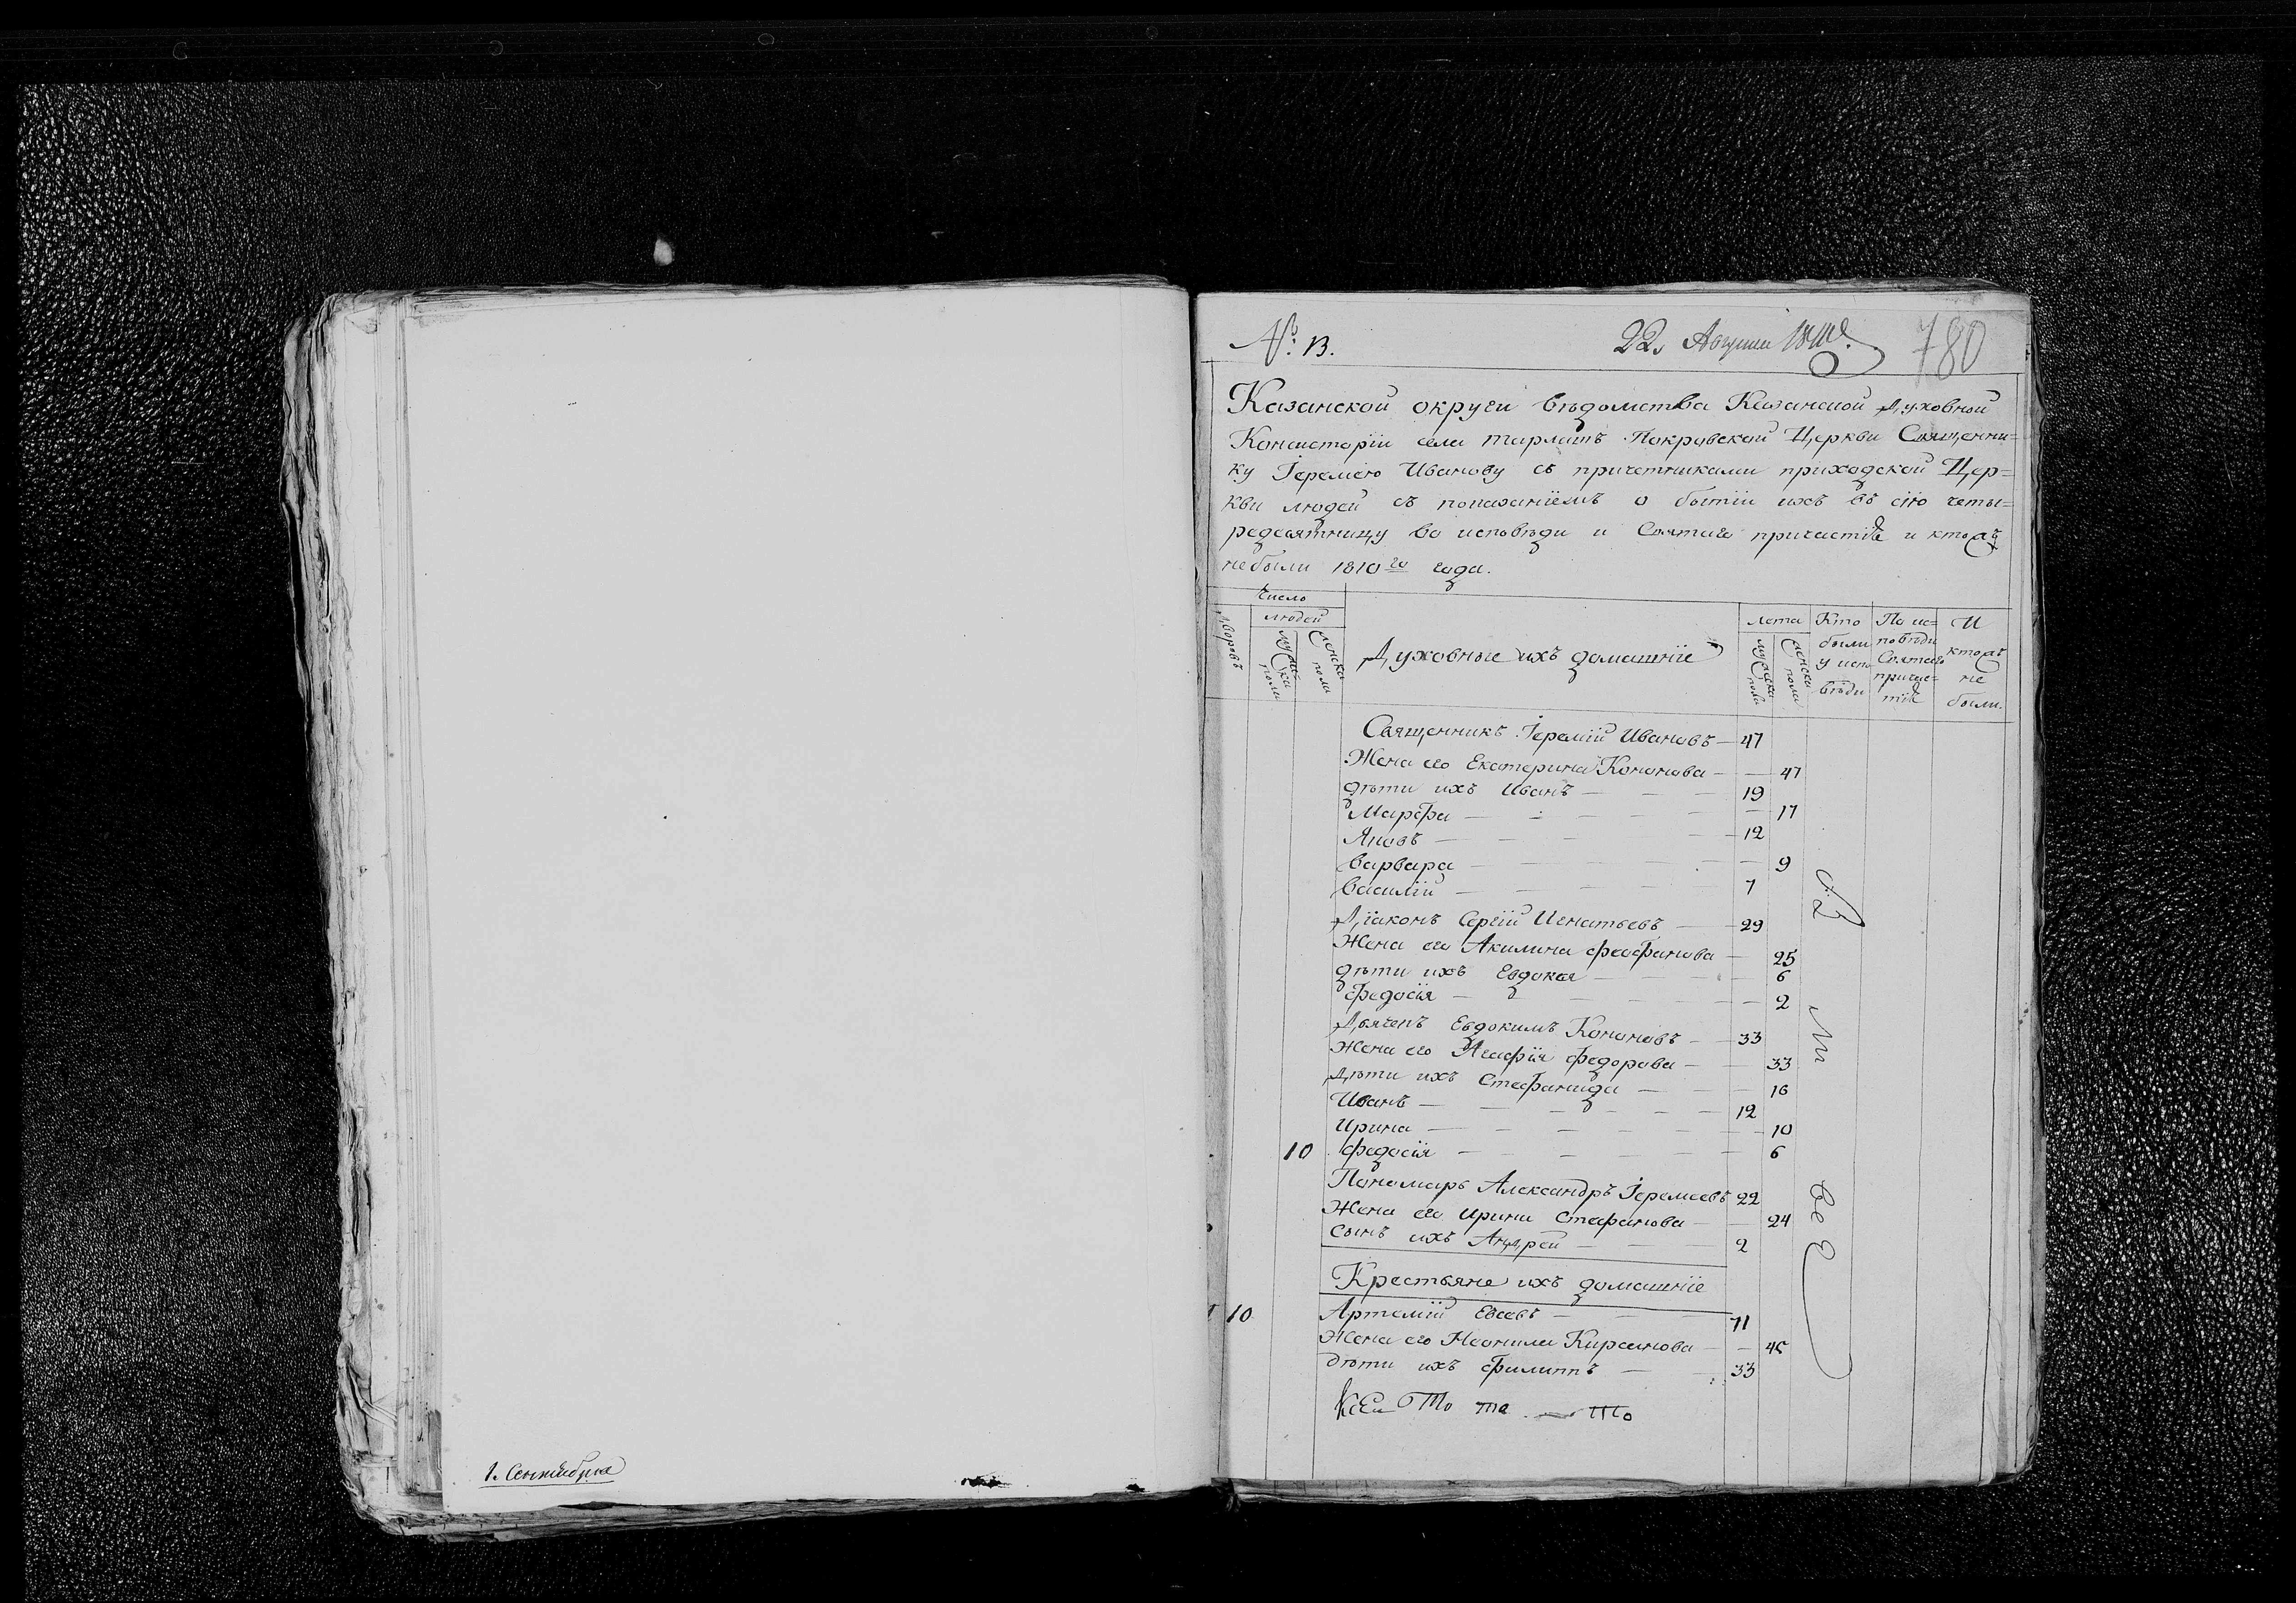 1. Сентября
№: 13.
22. Августа 780
Казанской округи вѣдомства Казанской духовной
Консисторіи села Тарлашъ Покровской Церкви Священни=
ку Іеремею Иванову съ причетниками приходской Цер=
кви людей съ показаніемъ о бытіи ихъ въ сію четы=
редесятницу во исповѣди и Святаго причастія и ктожъ
небыли 1810го года.
Число
Дворовъ
людей
мужска пола
женска пола
Духовные ихъ домашніе
лета
мужска пола
женска пола
Кто были у испо вѣди
По ис= повѣди Святаго причас= тія
И ктожъ не были.
Священникъ Іеремій Ивановъ — 47
Жена его Екатерина Кононова — — 47
дѣти ихъ Иванъ — 19
Марфа — 17
Яковъ — 12
Варвара — 9
Василій — 7
Діаконъ Сергій Игнатьевъ — 29
Жена его Акилина Феофанова — 25
дѣти ихъ Евдокея — 6
Федосія — 2
Дьячекъ Евдокимъ Кононовъ — 33
Жена его Агафія Федорова — 33
Дѣти ихъ Стефанида — 16
Иванъ — 12
Ирина — 10
10 Федосія — 6
Пономарь Александръ Іеремеевъ 22
Жена его Ирина Стефанова — 24
Сынъ ихъ Андрей — 2
Крестьяне ихъ домашніе
1 10 Артемій Евсевъ — 71
Жена его Неонила Кирсанова — 45
дѣти ихъ Филиппъ — 33